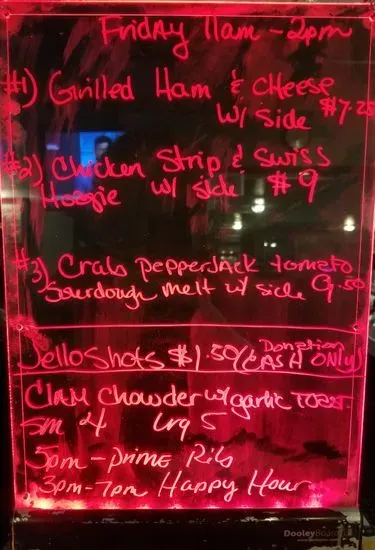 Friday 11am - 2pm
#1) Grilled Ham & Cheese
w/ side $7.25
#2) Chicken Strip & Swiss
Hoagie w/ side $9
#3) Crab pepperjack tomato
Sourdough melt w/ side 9.50
Donation
Jello Shots $1.50 (CASH ONLY)
Clam Chowder w/ garlic Toast
sm 4 Lrg 5
5pm - prime Rib
3pm - 7pm Happy Hour
DooleyBoard